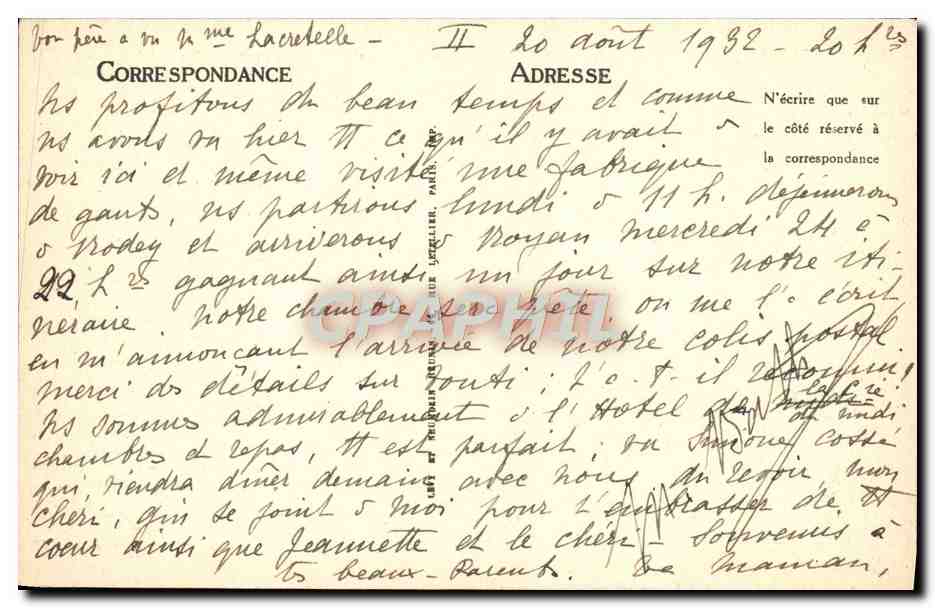 Ton père a vu Mme Lacretelle - II 20 août 1932 - 20 hres
CORRESPONDANCE ADRESSE
Ns profitons du beau temps et comme
ns avons vu hier tt ce qu'il y avait à
voir ici et même visité une fabrique
de gants, ns partirons lundi à 11 h. déjeunerons
à Rodez et arriverons à Royan mercredi 24 à
22 hres gagnant ainsi un jour sur notre iti-
néraire. Notre chambre sera prête, on me l'a écrit
en m'annonçant l'arrivée de notre colis postal
merci des détails sur Zonti; t'a-t-il reconnu!
Ns sommes admirablement à l'Hotel de la Cie
du midi
chambres et repas, tt est parfait; vu Simone Cossé
qui viendra dîner demain avec nous. Au revoir, mon
chéri, qui se joint à moi pour t'embrasser de tt
coeur ainsi que Jeannette et le chéri - Souvenirs à
tes beaux-Parents. Ta Maman,
N'écrire que sur
le côté réservé à
la correspondance
LEVY ET NEURDEIN RÉUNIS, 44, RUE LETELLIER, PARIS. IMP.
CPAPHIL